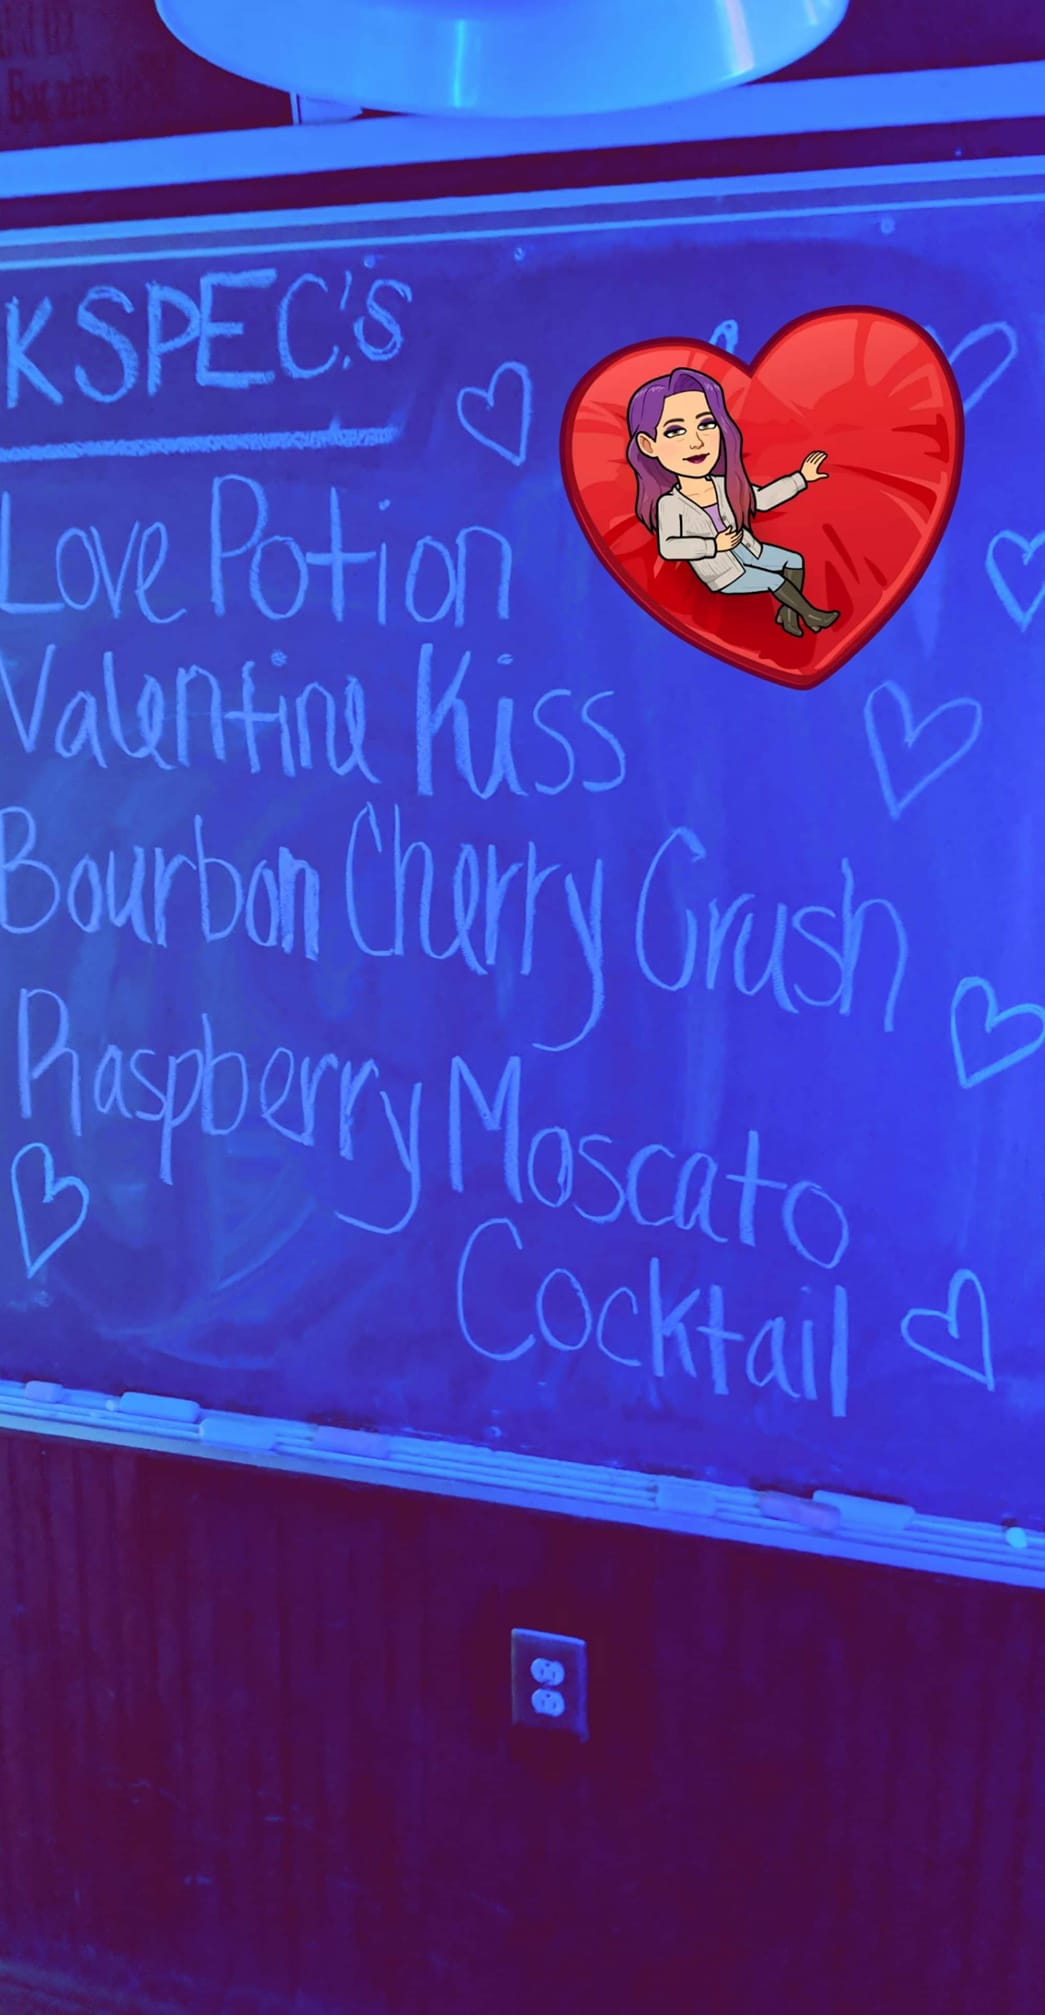 KSPEC.'S
Love Potion
Valentine Kiss
Bourbon Cherry Crush
Raspberry Moscato
Cocktail